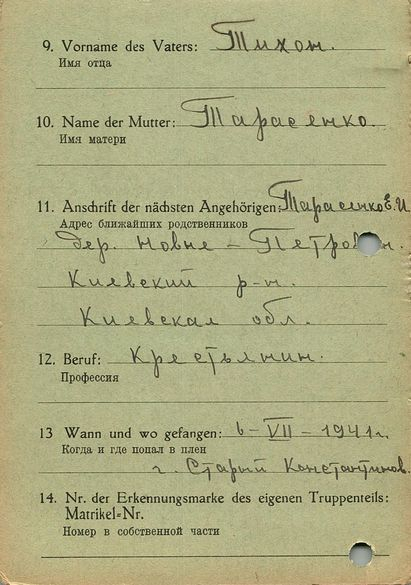 9. Vorname des Vaters: Тихон.
Имя отца
10. Name der Mutter: Тарасенко.
Имя матери
11. Anschrift der nächsten Angehörigen: Тарасенко Е. И
Адрес ближайших родственников
дер. Новые – 
Киевский р-н.
Киевская обл.
12. Beruf: Крестьянин.
Профессия
13 Wann und wo gefangen: 6 – VII – 1941 г.
Когда и где попал в плен
г. Старый Константинов.
14. Nr. der Erkennungsmarke des eigenen Truppenteils:
Matrikel-Nr.
Номер в собственной части